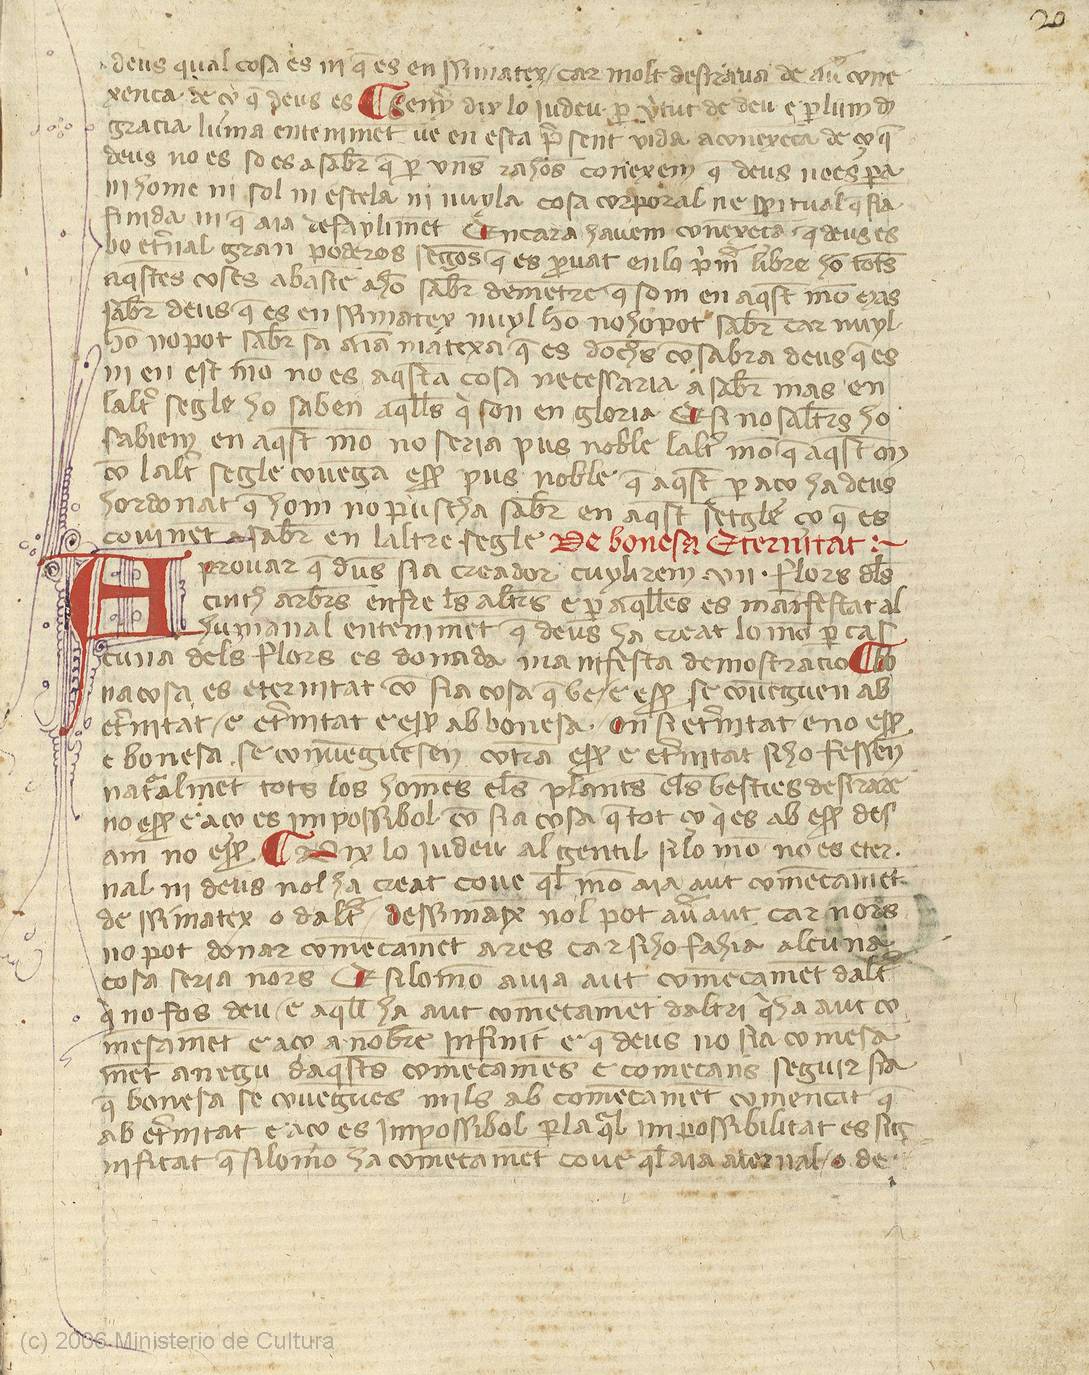 20
deus qual cosa es ni q̄ es en ssimatex / car molt desiraua de au̅ cone
xenca de ço q̄ deus es Seny̅ dix lo judeu ꝑ v̓tut de deu e ꝑ lum d̄
gracia luma enteniment ue en esta p̄sent vida a conexēca de ço q̄
deus no es so es a sab̄r q̄ ꝑ vn̄s rahōs conexem q̄ deus no es pa
ni home ni sol ni estela ni nuyla cosa corporal ne sp̄itual q̄ sia
finida ni q̄ aia defaylimēt Encara hauem conexēca q̄ deus es
bo et̓nal gran poderos segōs q̄ es ꝓuat en lo p̓m̄ libre hō totēs
aq̄stes coses abaste ahō sab̄r demētre q̄ som en aq̄st mō mas
sab̄r deus q̄ es en ssimatex nuyl hō no ho pot sab̄r car nuyl
hō no pot sab̄r sa aīa matexa q̄ es dōchs cō sabra deus q̄ es
ni en est mō no es aq̄sta cosa necessaria a sab̄r mas en
laltr̄ segle ho saben aq̄lls q̓ son en gloria E si nosaltr̄s ho
sabiem en aq̄st mō no seria pus noble laltr̄ mō q̄ aq̄st on
cō laltr̄ segle couega ess̄ pus noble q̄ aq̄st ꝑ aco ha deus
hordonat q̄ hom no puscha sab̄r en aq̄st setgle ço q̄ es
couinēt a sab̄r en laltre segle De bonesa Eternitat :~
A prouar q̄ d̄us sia creador cuylirem .vii. flors d̄ls
cinch arbr̄s entre l̄s altr̄s e ꝑ aq̄lles es manifestat al
humanal entenimēt q̄ deus ha creat lo mō ꝑ cas
cuna dels flors es donada manifesta demostracio Bo
na cosa es eternitat cō sia cosa q̄ be / e ess̄ se couēguen ab
et̓nitat / e et̓nitat e ess̄ ab bonesa. on si et̓nitat e no ess̄
e bonesa se conuēguesen cōtra ess̄ e et̓nitat si ho fessen
nat̓alm̄et tots los homēs els̄ plants els̄ besties desirarē
no ess̄ e aco es impossibol cō sia cosa q̄ tot ço q̓ es ab ess̄ des
am no ess̄ Dix lo judeu al gentil si lo mō no es eter
nal ni deus nol ha creat coue q̄l mō aia aut comēcamēt
de ssimatex o daltr̄ dessimatex nol pot au̓ aut car nors
no pot donar comēcamēt a res car si ho fahia alcuna
cosa seria nors E si lo mō auia aut comēcamēt daltr̄
q̓ no fos deu / e aq̄ll ha aut comēcamēt daltri q̓ ha aut co
mēsamēt e aco a nobre Infinit e q̄ deus no sia comēsa
mēt a negu daq̄sts comēcamēs e comēcans seguir sia
q̄ bonesa se couēgues mils ab comēcamēt comencāt q̄
ab et̓nitat e aco es impossibol ꝑ la q̄l impossibilitat es sig
nificat q̄ si lo mō ha comēcamēt coue q̄l aia aternal / o de
(c) 2006 Ministerio de Cultura